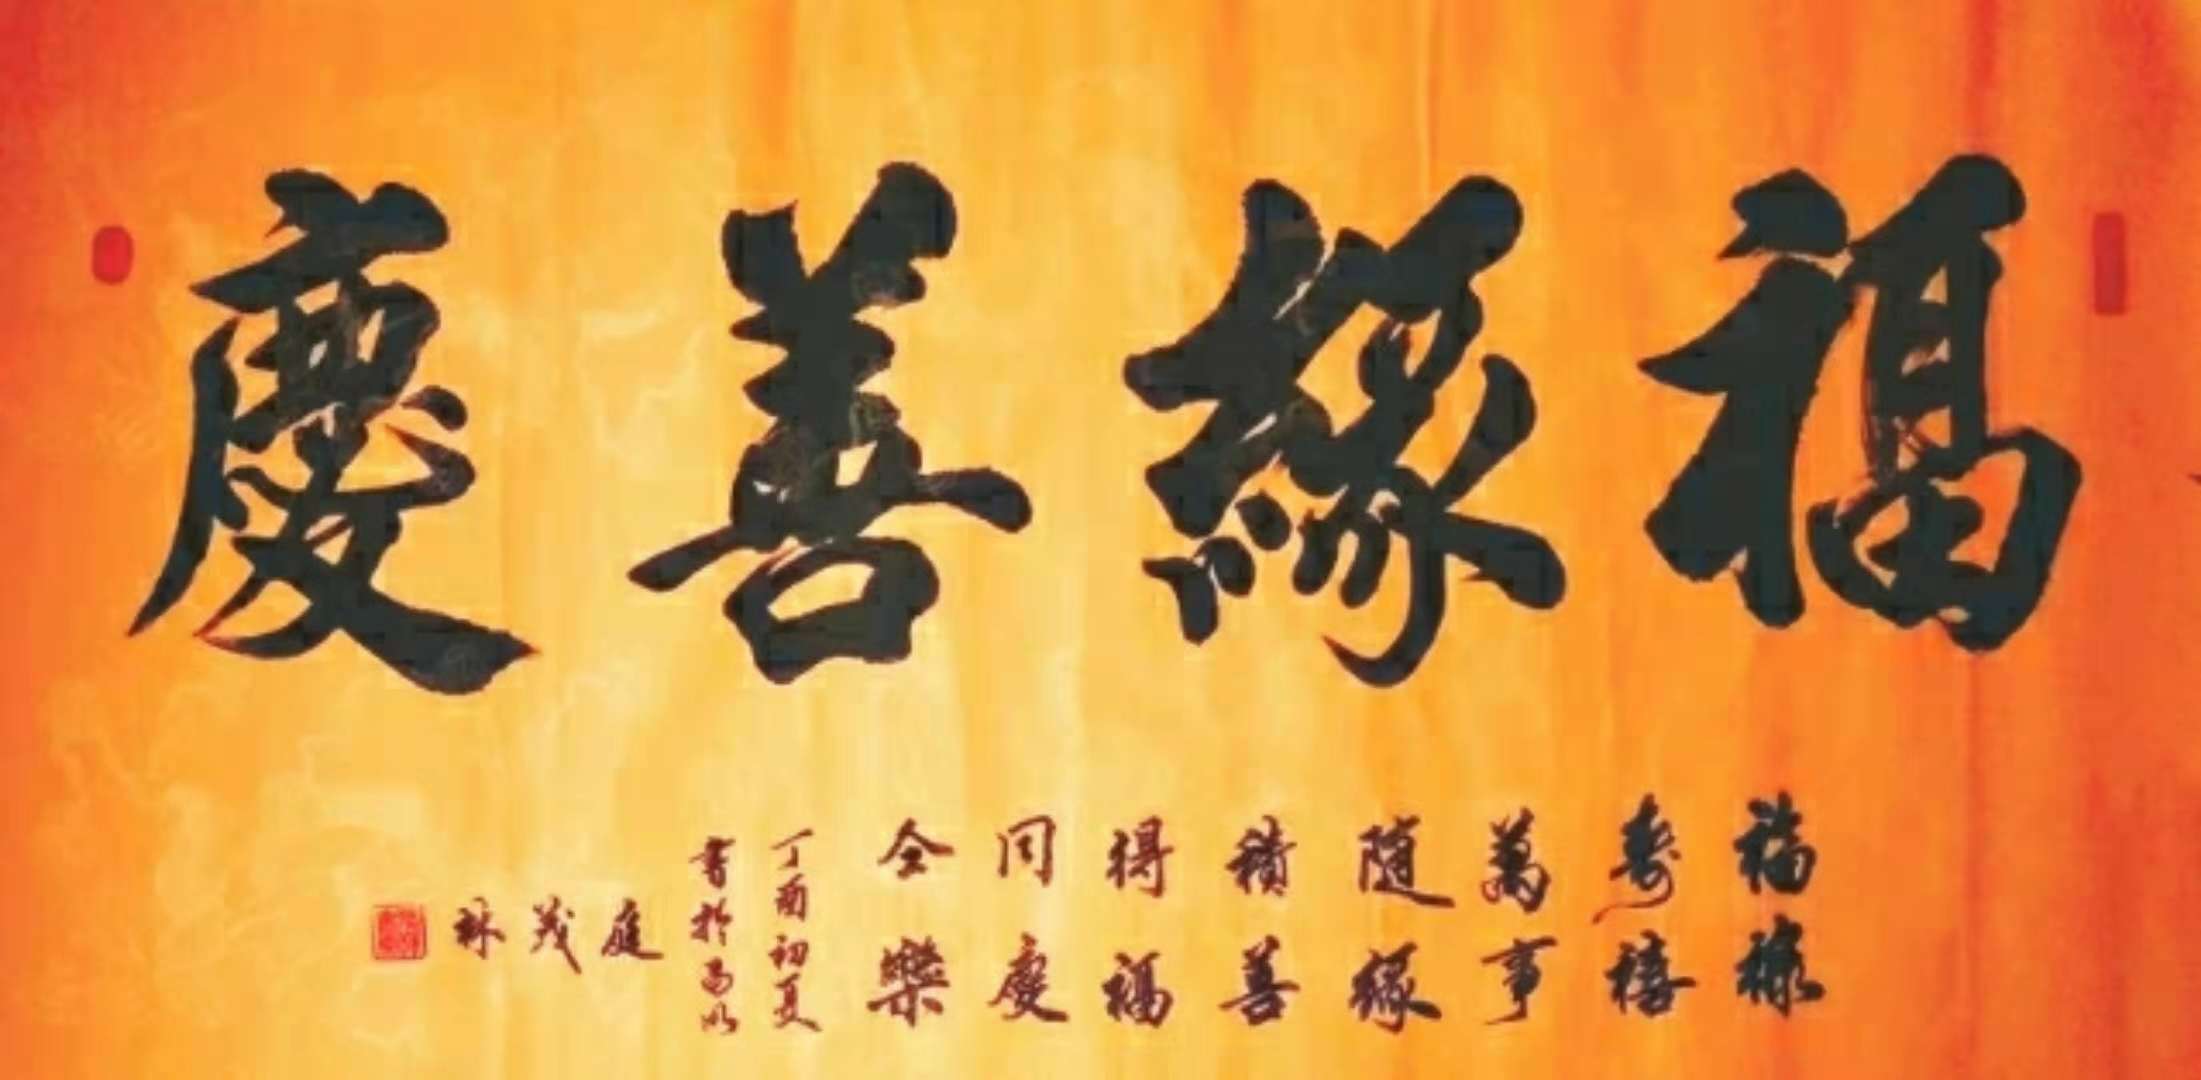 福緣善慶
福祿
壽禧
萬事
随緣
積善
得福
同慶
仝樂
丁酉初夏
書於
庭茂林